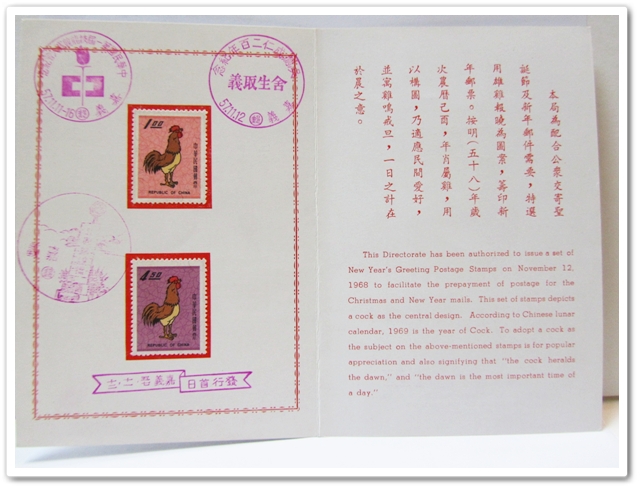 舍生取義
嘉義
57.11.12
嘉義
57.11.11-16
1.00
中華民國郵票
REPUBLIC OF CHINA
4.00
中華民國郵票
REPUBLIC OF CHINA
日首行發
本局為配合公眾交寄聖
誕節及新年郵件需要，特選
用雄雞報曉為圖案，籌印新
年郵票。按明(五十八)年歲
次農曆己酉，年肖屬雞，用
以構圖，乃適應民間愛好，
並寓雞鳴戒旦，一日之計在
於晨之意。
This Directorate has been authorized to issue a set of
New Year's Greeting Postage Stamps on November 12,
1968 to facilitate the prepayment of postage for the
Christmas and New Year mails. This set of stamps depicts
a cock as the central design. According to Chinese lunar
calendar, 1969 is the year of Cock. To adopt a cock as
the subject on the above-mentioned stamps is for popular
appreciation and also signifying that "the cock heralds
the dawn," and "the dawn is the most important time of
a day."